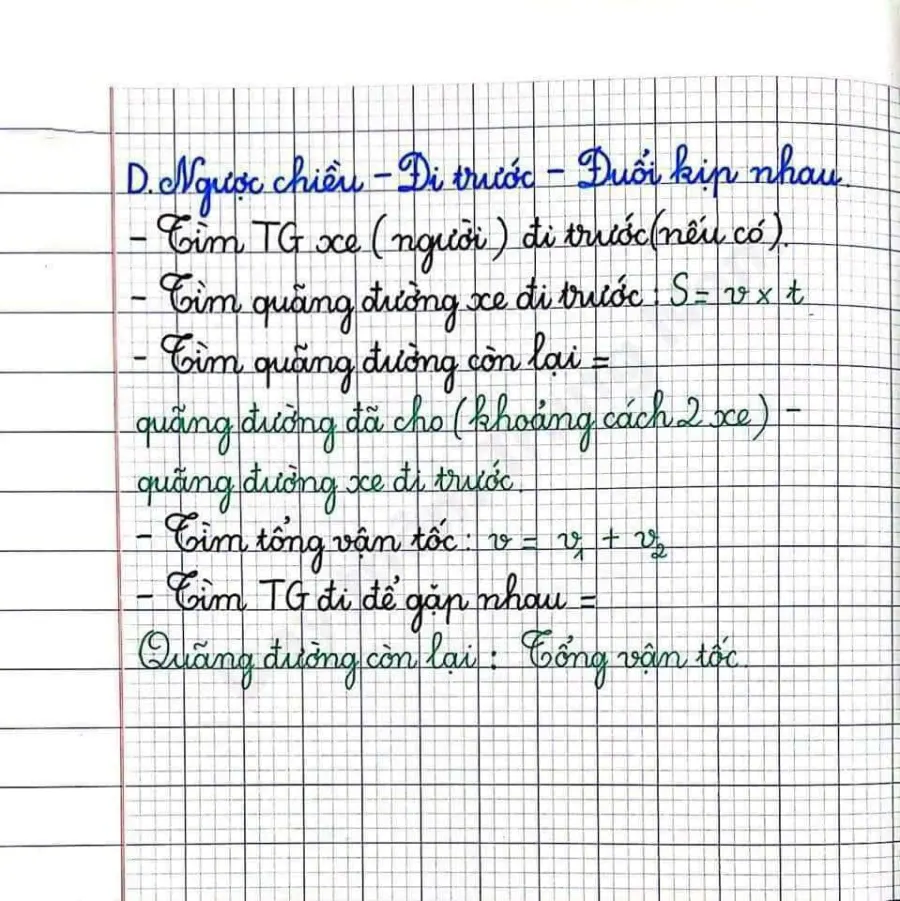 D. Ngược chiều - Đi trước - Đuổi kịp nhau.
- Tìm TG xe (người) đi trước (nếu có).
- Tìm quãng đường xe đi trước: S = v x t
- Tìm quãng đường còn lại =
quãng đường đã cho (khoảng cách 2 xe) -
quãng đường xe đi trước.
- Tìm tổng vận tốc: v = v₁ + v₂
- Tìm TG đi để gặp nhau =
Quãng đường còn lại : Tổng vận tốc.